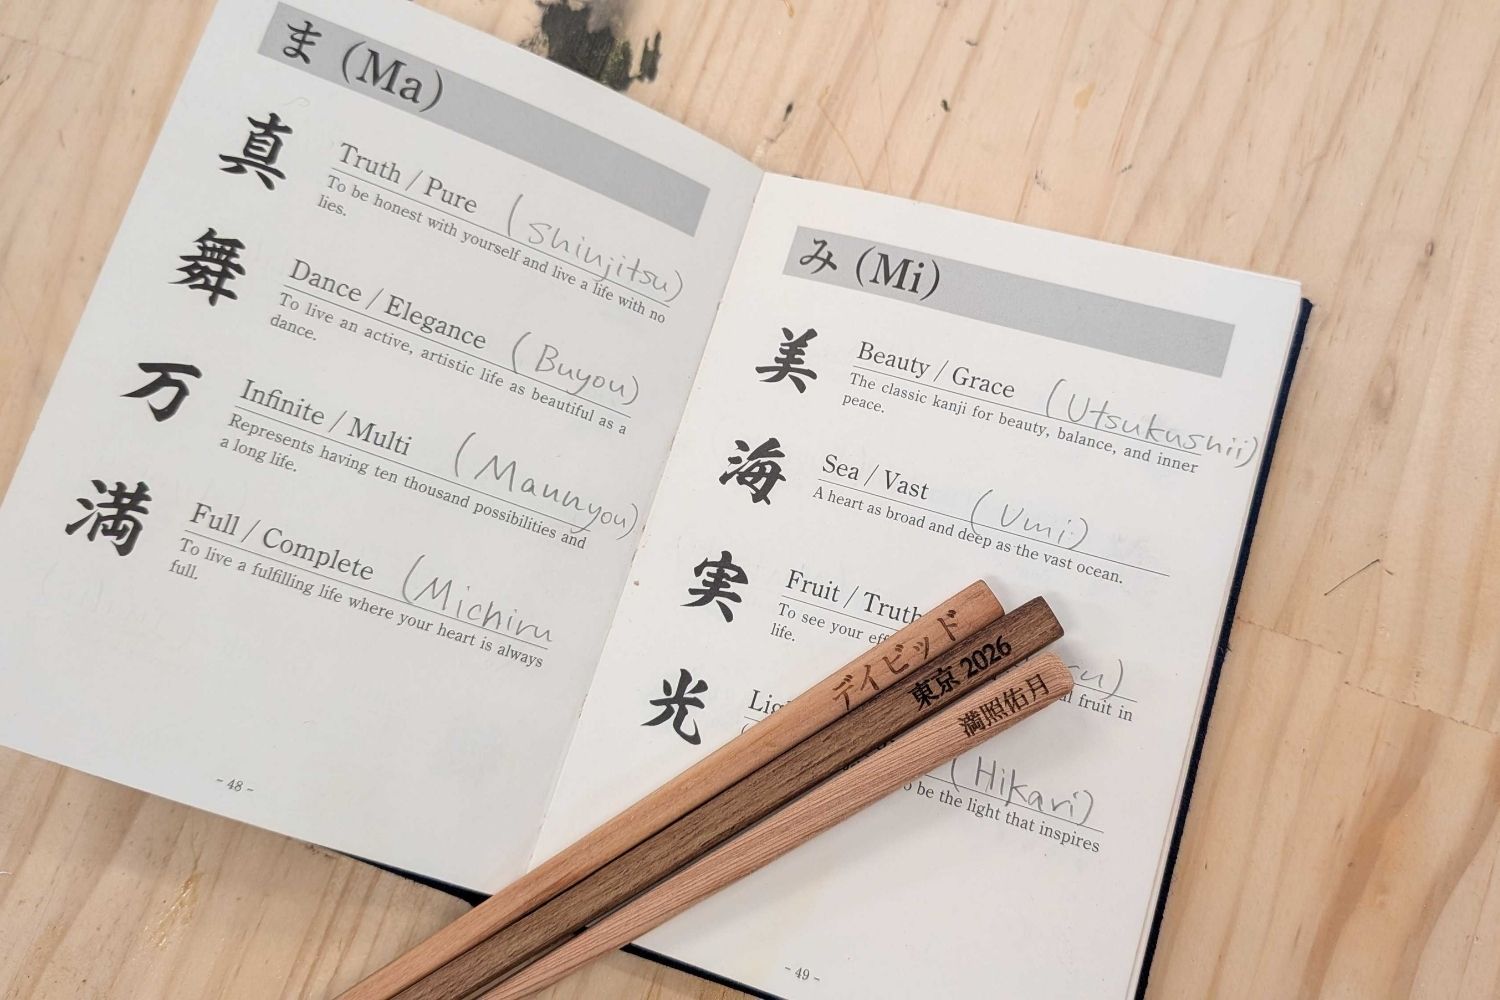 ま (Ma)
真
Truth / Pure (Shinjitsu)
To be honest with yourself and live a life with no
lies.
舞
Dance / Elegance (Buyou)
To live an active, artistic life as beautiful as a
dance.
万
Infinite / Multi (Mannyou)
Represents having ten thousand possibilities and
a long life.
満
Full / Complete (Michiru
To live a fulfilling life where your heart is always
full.
- 48 -
み (Mi)
美
Beauty / Grace (Utsukushii)
The classic kanji for beauty, balance, and inner
peace.
海
Sea / Vast (Umi)
A heart as broad and deep as the vast ocean.
実
Fruit / Truth
To see your
fruit in
life.
光
(Hikari)
be the light that inspires
- 49 -
デイビッド
東京 2026
満照佑月